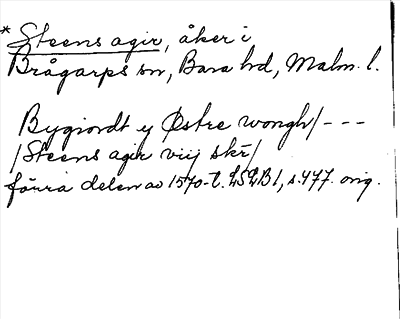 * Steens agir, åker i
Brågarps sn, Bara hd, Malm. l.
Bygiordt ij Østre wongh/ - - -
/Steens agir viij skr/
förra delen av 1570-t. LSLB1, s.477. orig.